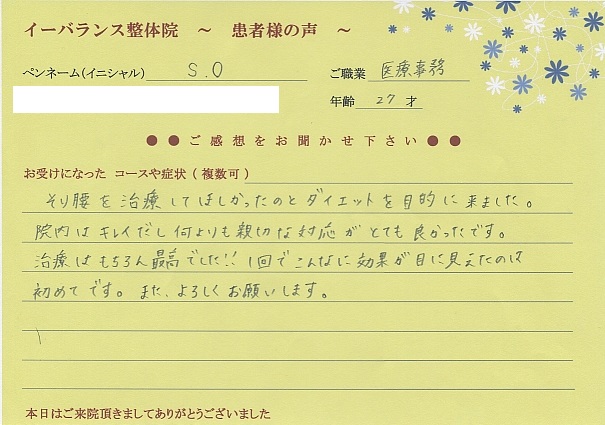 イーバランス整体院 ～ 患者様の声 ～
ペンネーム(イニシャル) S.O ご職業 医療事務
年齢 27 才
●●ご感想をお聞かせ下さい●●
お受けになった コースや症状 ( 複数可 )
そり腰を治療してほしかったのとダイエットを目的に来ました。
院内はキレイだし何よりも親切な対応がとても良かったです。
治療はもちろん最高でした!! 1回でこんなに効果が目に見えたのは
初めてです。また、よろしくお願いします。
本日はご来院頂きましてありがとうございました